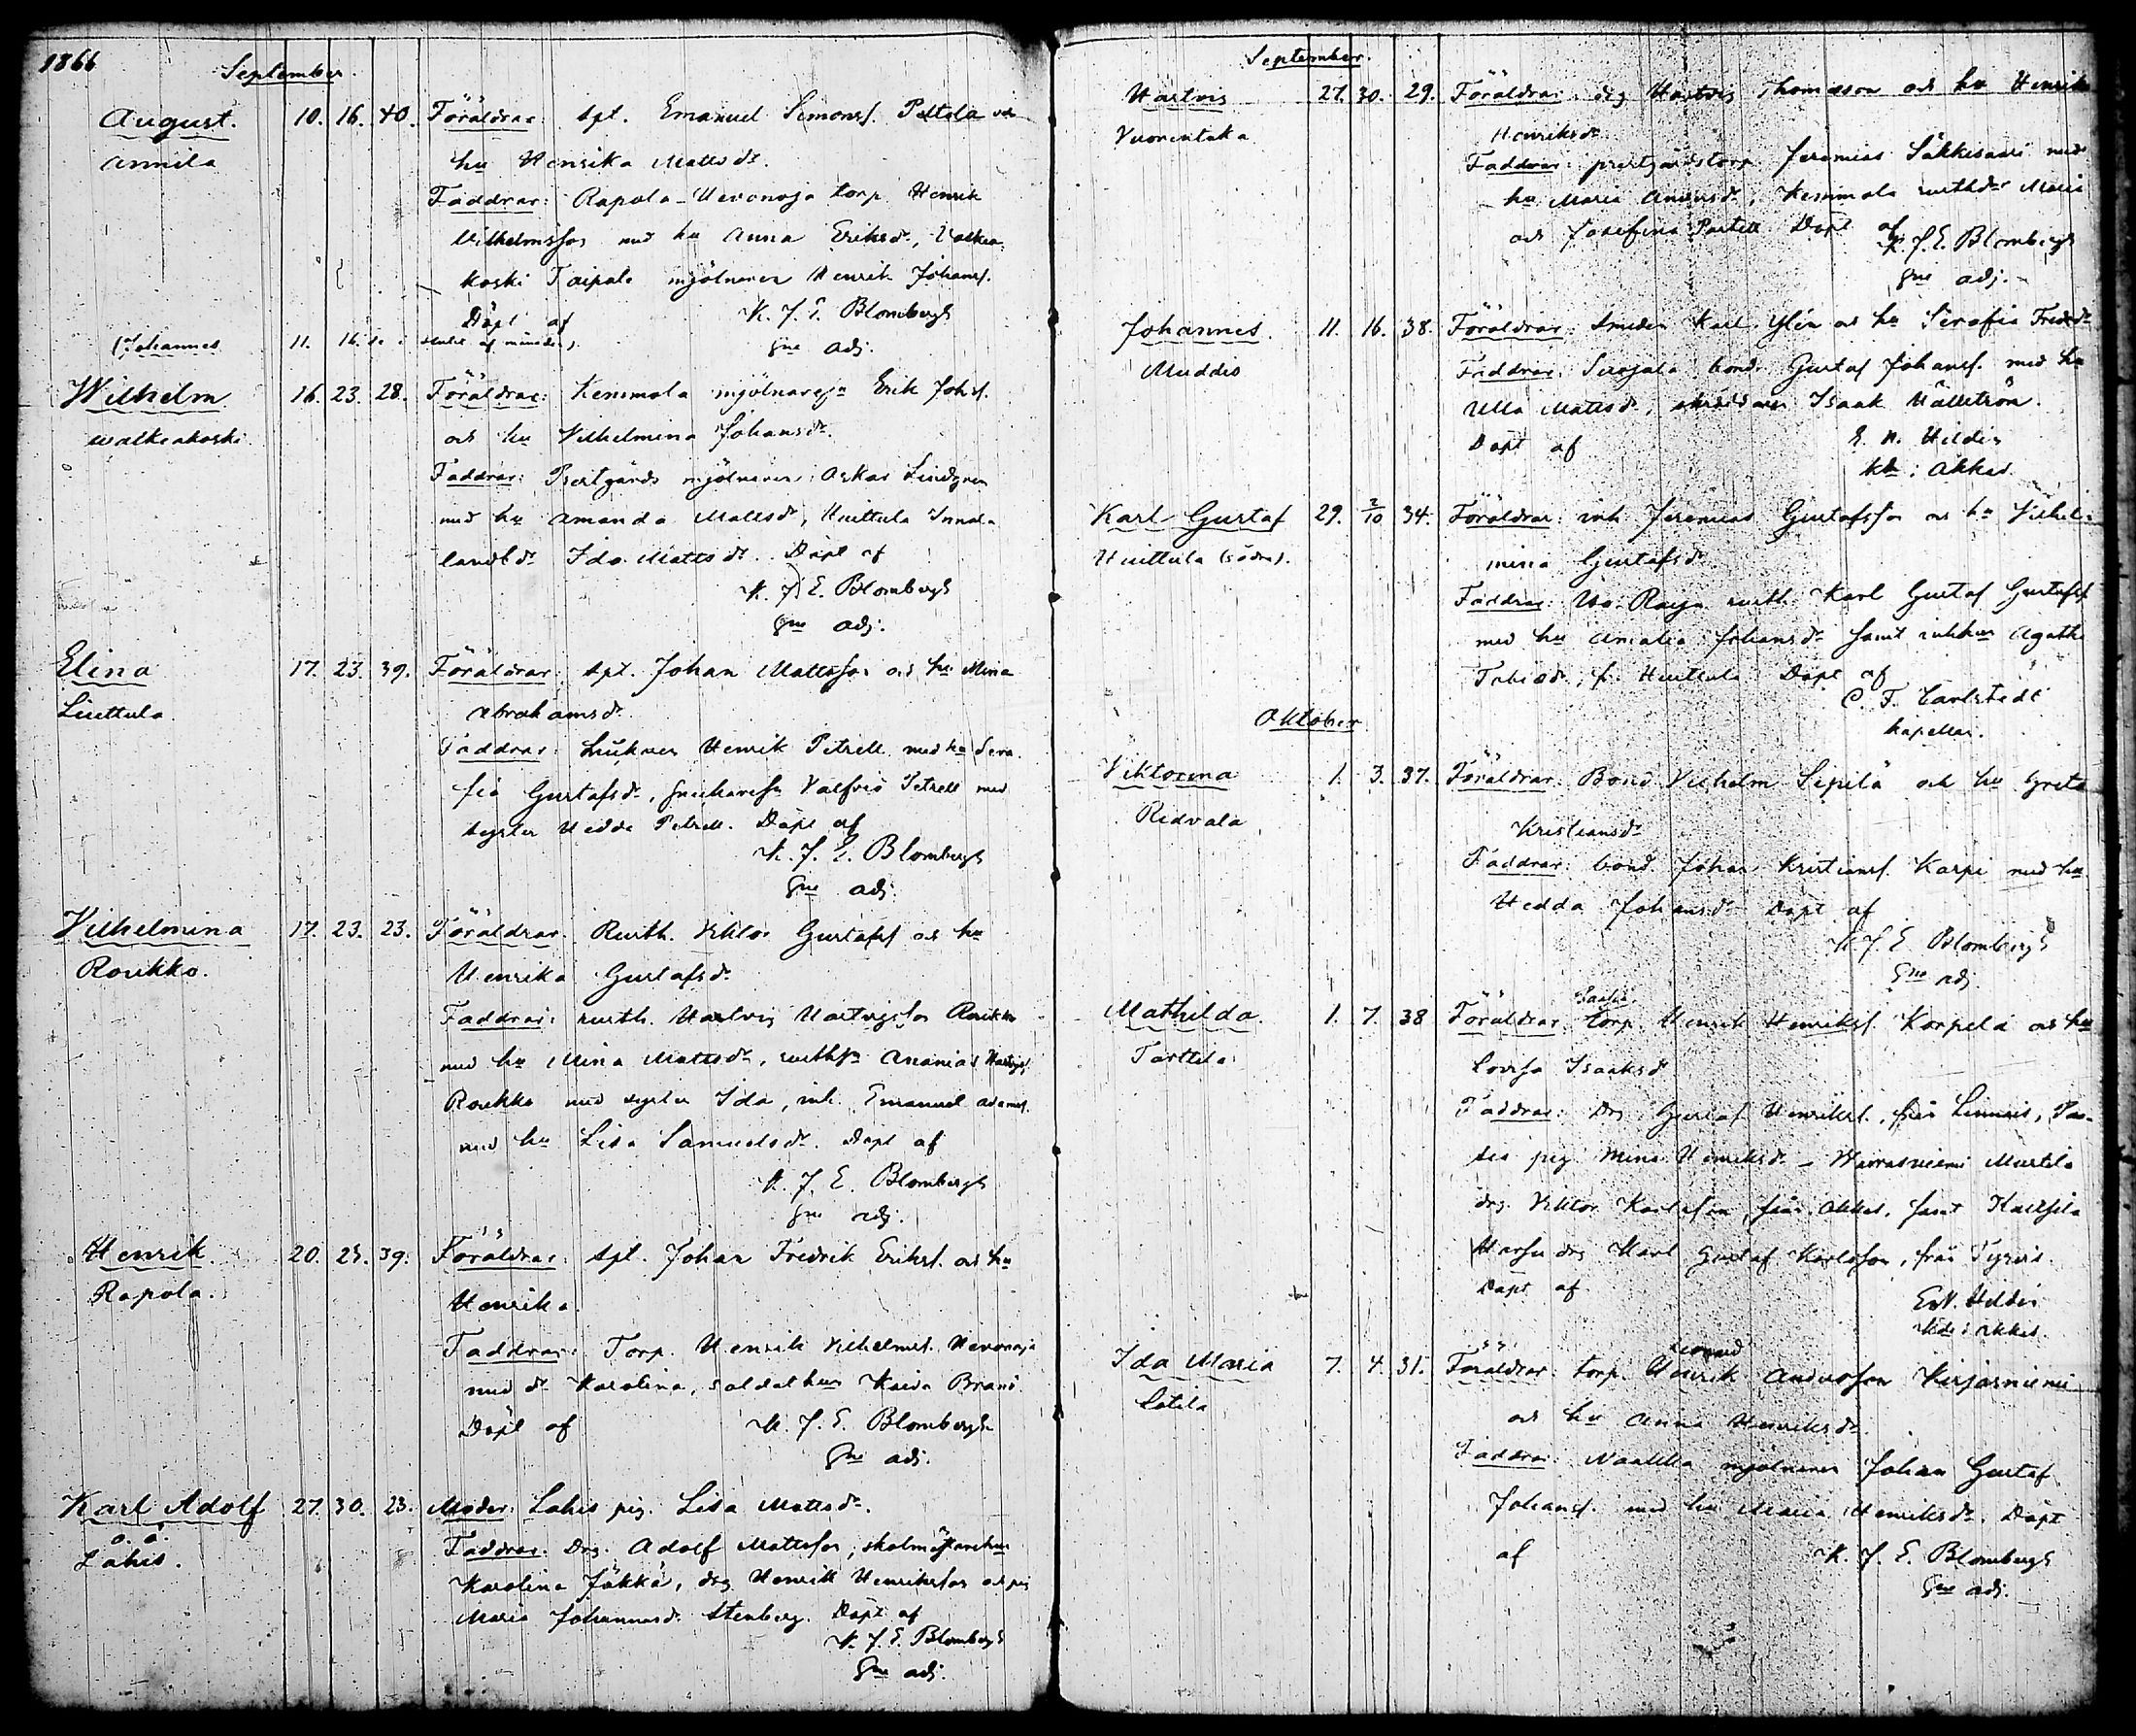 1866
September
August. 10. 16. 40. Föräldrar: spl. Emanuel Simonss. Pettola och
Annila hu Henrika Mattsdr.
Faddrar: Rapola-Uevonoja torp. Henrik
Vilhelmsson med hu Anna Eriksdr, Valkea
koski Taipale mjölnaren Henrik Johanss.
Döpt af K. J. E. Blombergh
gne adj.
(Johannes 11. 16.
Wilhelm 16. 23. 28. Föräldrar: Kemmola mjölnare Erik Johss.
Walkeakoski. och hu Vilhelmina Johansdr.
Faddrar: Prestgårds mjölnaren Oskar Lindgren
med hu Amanda Mattsdr, Huittula Innala
landbdr Ida Mattsdr. Döpt af
K. J. E. Blombergh
gne adj.
Elina 17. 23. 39. Föräldrar: spl. Johan Mattsson och hu Mina
Liuttula. Abrahamsdr.
Faddrar: Henrik Petrell med hu Sera
fia Gustafsdr, Valfrid Petrell med
syster Hedda Petrell. Döpt af
K. J. E. Blombergh
gne adj.
Vilhelmina 17. 23. 23. Föräldrar: Rusth. Viktor Gustafss och hu
Roukko. Henrika Gustafsdr.
Faddrar: rusth. Hartvig Hartvigsson Roukko
med hu Mina Mattsdr, rusth Ananias Hartvigs.
Roukko med syster Ida, inh. Emanuel Adamss.
med hu Lisa Samuelsdr. Döpt af
K. J. E. Blombergh
gne adj.
Henrik 20. 23. 39. Föräldrar: spl. Johan Fredrik Erikss. och hu
Rapola. Henrika.
Faddrar: Torp. Henrik Vilhelmss. Hevonoja
med dr Karolina, soldathun Kaisa Brand
Döpt af K. J. E. Blombergh
gne adj.
Karl Adolf 27. 30. 23. Moder: Lahis pig. Lisa Mattsdr.
o. ä.
Lahis. Faddrar: Drg. Adolf Mattsson, skolmästarehun
Karolina Jäkkä, drg Henrik Henriksson och pig
Maria Johannesdr Stenberg. Döpt af
K. J. E. Blombergh
gne adj.
September.
Hartvig 27. 30. 29. Föräldrar: drg Hartvig Thomasson och hu Henrika
Vuorentaka Henriksdr.
Faddrar: prestgårdstorp. Jeremias Säkkisaari med
hu Maria Andersdr, Kemmola rusthdr Maria
och Josefina Partell. Döpt af
K. J. E. Blombergh
gne adj.
Johannes. 11. 16. 38. Föräldrar: smeden Karl Ylén och hu Serafia Fredrdr
Muddis Faddrar: Serojala bond. Gustaf Johanss. med hu
Ulla Mattsdr, skräddaren Isaak Hällström.
Döpt af E. N. Hildén
kh i Akkas
Karl Gustaf 29. 2/10 34. Föräldrar: inh. Jeremias Gustafsson och hu Vilhel-
Huittula (södra). mina Gustafsdr.
Faddrar: Uo. Raija rusth. Karl Gustaf Gustafss
med hu Amalia Johansdr samt inhhun Agatha
Tobiasdr, fr. Huittula. Döpt af
C. F. Carlstedt
kapellan.
Oktober
Viktorina 1. 3. 37. Föräldrar: Bond. Vilhelm Sipilä och hu Greta
Ridvala Kristiansdr
Faddrar: bond. Johan Kristianss. Karpi med hu
Hedda Johansdr Döpt af
K. J. E. Blombergh
gne adj.
Mathilda. 1. 7. 38 Föräldrar: torp. Henrik Henrikss. Korpela och hu
Tarttila Lovisa Isaaksdr
Faddrar: Drg Gustaf Henrikss., från Linnais,
pig Mina Henriksdr - Warrasniemi Murtila
drg. Viktor Karlsson, från Akkas, samt
drg Karl Gustaf Karlsson, från Tyrvis.
Döpt af E. N. Hildén
kh i Akkas.
Ida Maria 7. 4. 31. Föräldrar: torp. Henrik Leonard Andersson Kirjasniemi
Lotila och hu Anna Henriksdr.
Faddrar: Naakka mjölnaren Johan Gustaf
Johanss. med hu Maria Henriksdr. Döpt
af K. J. E. Blombergh
gne adj.